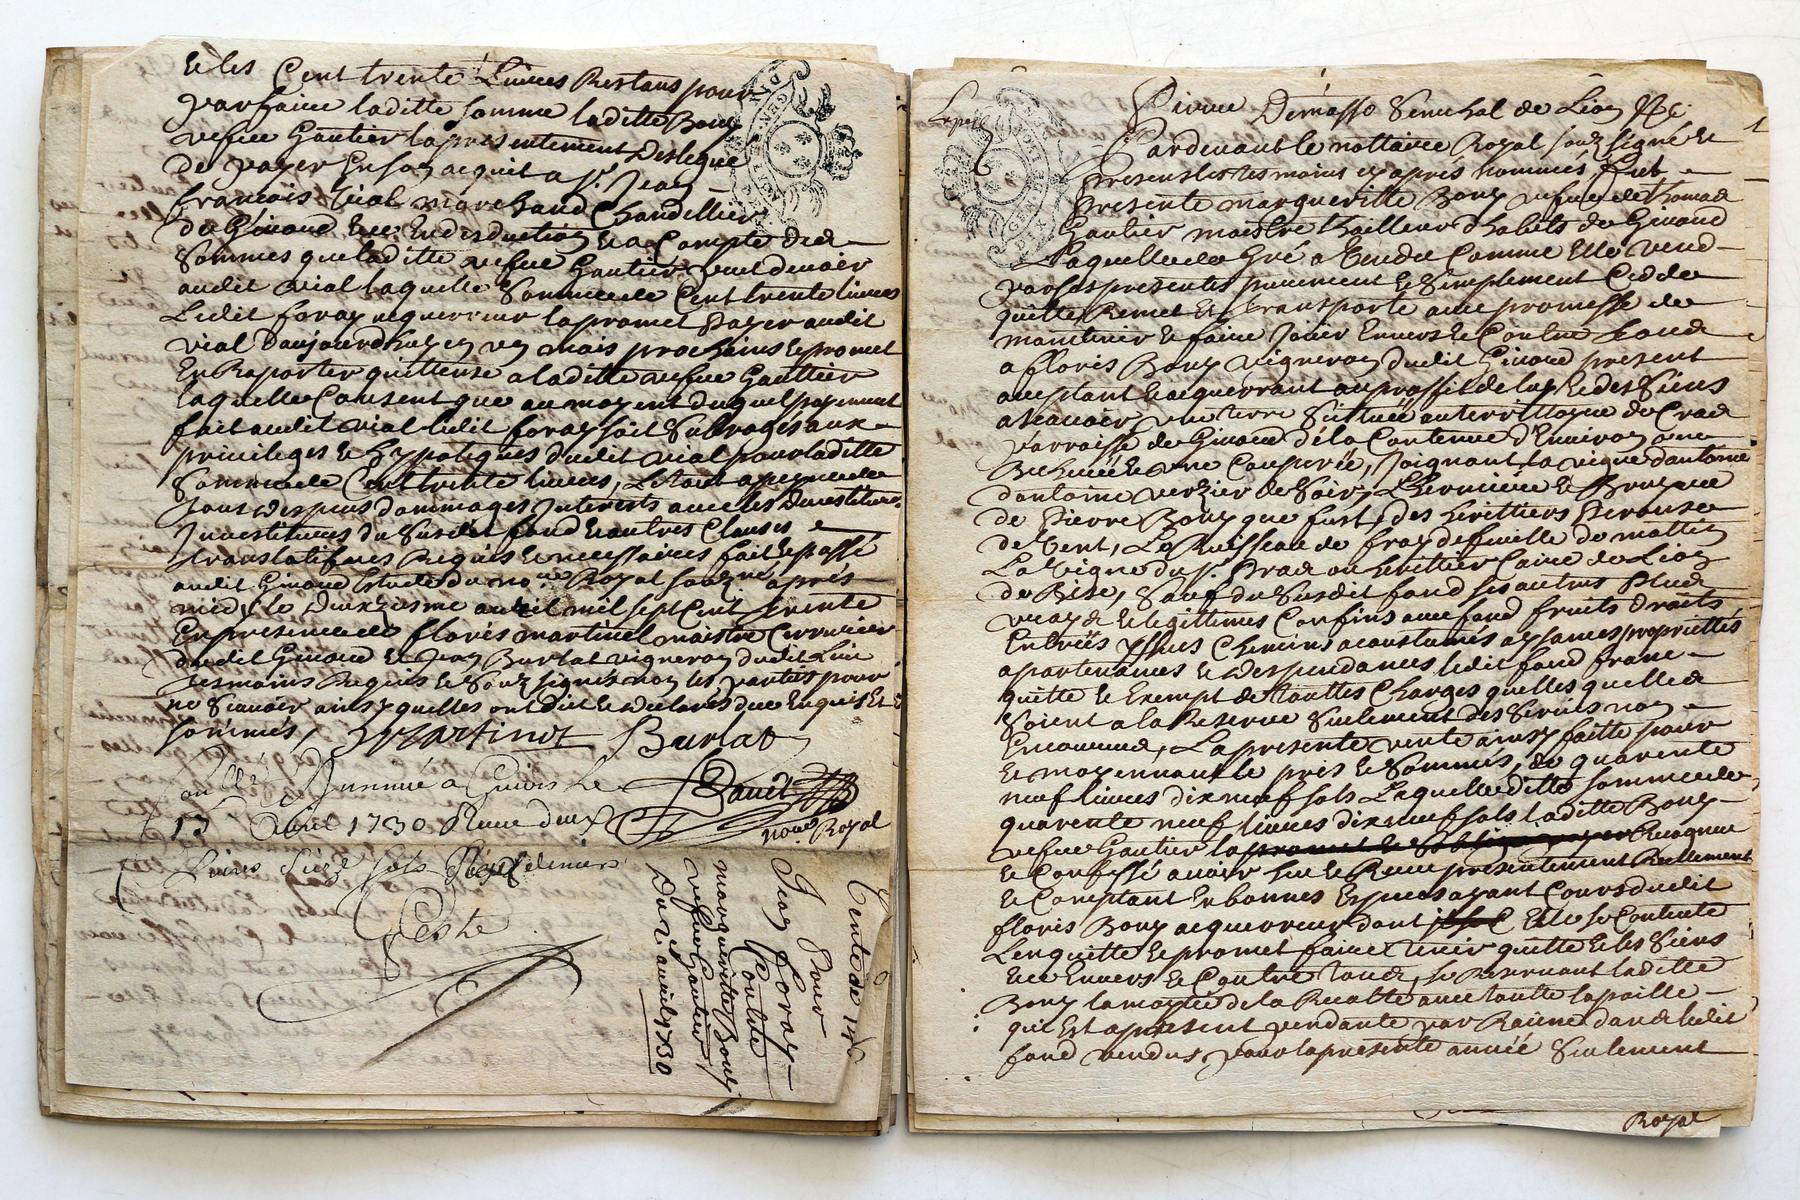 et les Cent trente Livres Restans pour
parfaire laditte somme laditte Bouy
vefve Gautier la presentement deslegué
de payer En son acquit a Sr. Jean
francois Vial marchand Chandellier
de Givord Et ce En desduction Et a Compte des
sommes que laditte vefve Gautier peut devoir
audit vial laquelle somme de Cent trente livres
Ledit foray acquerreur la promet payer audit
vial D'aujourdhuy En mois prochains et promet
En Raporter quittense a laditte vefve Gauttier
laquelle Consent que au moyent duquel payement
fait audit vial ledit foray soit subrogés aux
privileges et hypoteques dudit vial pour laditte
somme de Cent trente livres, Le tout a peyne de
tous despens dommages Interests avec les Devestitures
Investitures du susdit fond et autres Clauses
translatifves Requises et necessaires fait et passé
audit Givord Estude du nore. Royal soubzné. apres
midy le deuxiesme avril mil sept Cent trente
En presence de floris martinet maistre
dudit Givord et Jean Burlat vigneron dudit Lieu
tesmoins Requis et soubzsignés non les parties pour
ne scavoir ainsy quelles ont dit et declarés de ce Enquis Et
sommés, Martinet Burlat
a Givors Le
Davet
13 Avril 1730 Receu deux
nore. Royal
Livres Seize sols
Teste
Vente de
Pour
Jean foray
Contre
margueritte Bouy
vefve Gautier
Du 2 avril 1730
Pierre Demasso Senechal de Lion &c
Pardevant le nottaire Royal soubzsigné et
presents les tesmoins cy aprés nommés, fut
presente margueritte Bouy vefve de Thomas
Gautier maistre thailleur d'habits de Givord
Laquelle de Gré a vendu Comme Elle vend
par ces presentes purement et simplement Cedde
quitte Remet Et transporte avec promesse de
maintenir et faire Jouir Envers et Contre tous
a floris Bouy vigneron dudit Givord present
aceptant et acquerrant au proffit de luy et des siens
a scavoir une terre scittuée au territtoyre du Crac
parroisse de Givord de la Contenue d'Environ une
Bicherée et une Couperée, Joignant la vigne d'antoine
d'antoine verzier de soir, L'hermiere et Broyere
de Pierre Bouy que fust des herittiers Peronse
de vent, Le Ruisseau de de mattin
La vigne du Sr. Brac ou herittier Caire de Lion
de Bise, sauf du susdit fond ses autres plus
vrays et legittimes Confins avec fond fruits droits
Entréés yssues Chemins acoustumés aysances proprietés
apartenances et despendances ledit fond franc
quitte et Exempt de touttes Charges quelles quelles
soient a la Reserve seulement des servis non
Encourrus, La presente vente ainsy faitte pour
et moyennant le pris et sommes, de quarente
neuf livres dix neuf sols Laquelle ditte somme de
quarente neuf livres dix neuf sols laditte Bouy
vefve Gautier Recogneu
et Confessé avoir heu et Receu presentement Reellement
et Comptant En bonnes Especes ayant Cours dudit
floris Bouy acquerreur dont Elle se Contente
Len quitte et promet faire tenir quitte et les siens
et ce Envers et Contre tous, se Reservant laditte
Bouy la moytié de la Recolte avec toutte la paille
qui Est apresent pendante par Racine dans ledit
fond vendus pour la presente année seulement
Royal